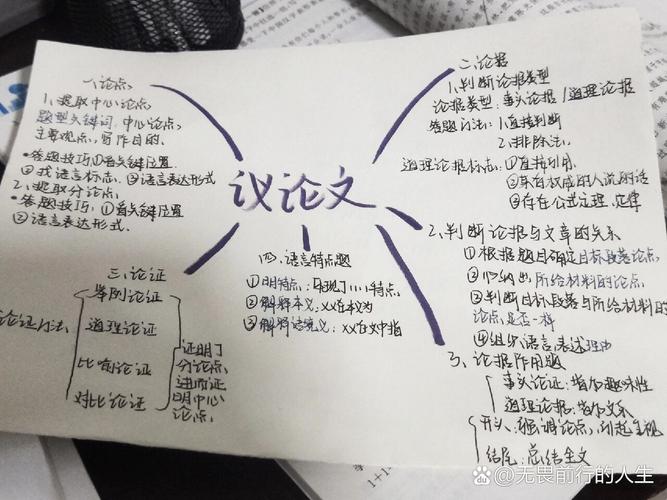 议论文
一、论点
1、提取中心论点
题型关键词:中心论点、
主要观点,写作目的。
•答题技巧:①看关键位置
②找语言标志,③语言表达形式
2、提取分论点。
•答题技巧:①看关键位置
②语言表达形式.
二、论据
1.判断论据类型
论据类型:事实论据/道理论据
答题方法:1.直接判断
2.排除法.
道理论据标志:①直接引用.
②某有权威的人说的话
③存在公式定理、定律
2、判断论据与文章的关系
①根据题目确定目标段落论点,
②归纳出所给材料的论点,
③判断目标段落与所给材料的
论点是否一样
④组织语言,表述理由
3、论据作用题
事实论证:增加趣味性
道理论据:增加文采
开头:强调论点,引起重视
结尾:总结全文
三、论证
论证方法
举例论证
道理论证
比喻论证
对比论证
证明了
分论点,
进而证
明中心
论点.
四、语言特点题
①明特点:体现了……特点,
②解释本义:xx在本义为
③解释语境义:xx在文中指
1+1
无畏前行的人生